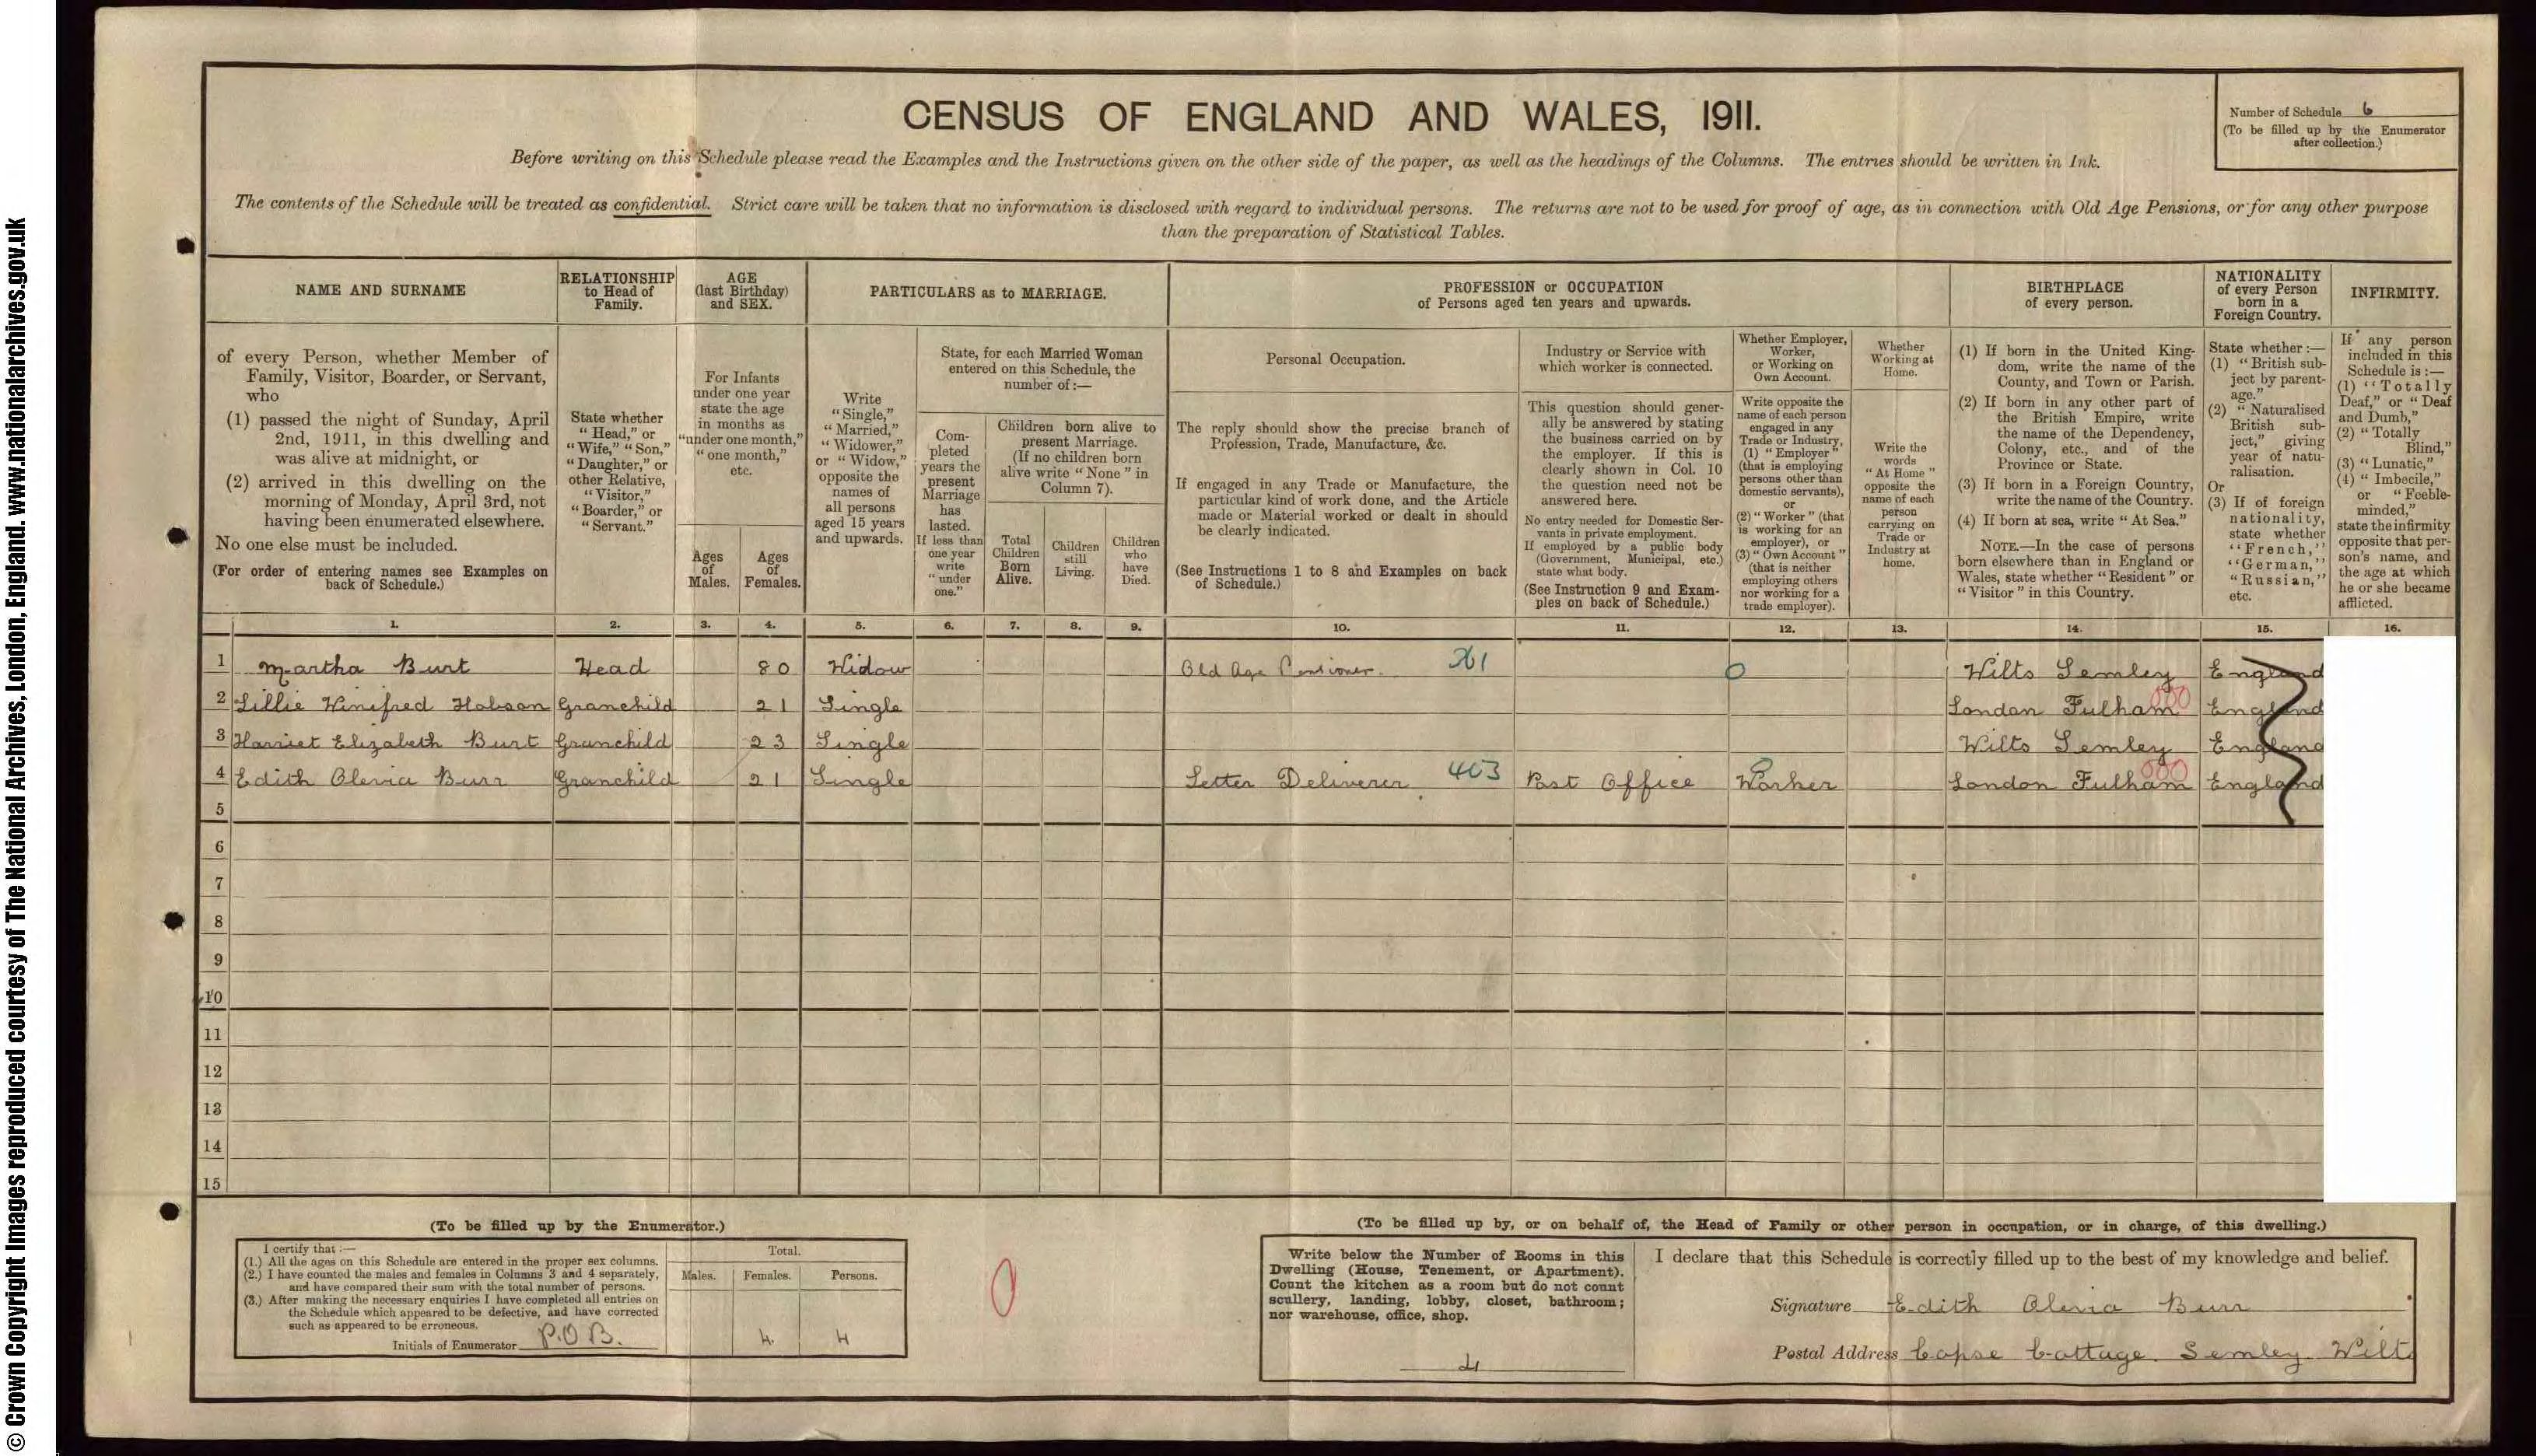 © Crown Copyright Images reproduced courtesy of The National Archives, London, England. www.nationalarchives.gov.uk
CENSUS OF ENGLAND AND WALES, 1911.
Number of Schedule 6
(To be filled up by the Enumerator
after collection.)
Before writing on this Schedule please read the Examples and the Instructions given on the other side of the paper, as well as the headings of the Columns. The entries should be written in Ink.
The contents of the Schedule will be treated as confidential. Strict care will be taken that no information is disclosed with regard to individual persons. The returns are not to be used for proof of age, as in connection with Old Age Pensions, or for any other purpose
than the preparation of Statistical Tables.
NAME AND SURNAME
of every Person, whether Member of
Family, Visitor, Boarder, or Servant,
who
(1) passed the night of Sunday, April
2nd, 1911, in this dwelling and
was alive at midnight, or
(2) arrived in this dwelling on the
morning of Monday, April 3rd, not
having been enumerated elsewhere.
No one else must be included.
(For order of entering names see Examples on
back of Schedule.)
RELATIONSHIP
to Head of
Family.
State whether
"Head," or
"Wife," "Son,"
"Daughter," or
other Relative,
"Visitor,"
"Boarder," or
"Servant."
AGE
(last Birthday)
and SEX.
For Infants
under one year
state the age
in months as
"under one month,"
"one month,"
etc.
Ages
of
Males.
Ages
of
Females.
PARTICULARS as to MARRIAGE.
Write
"Single,"
"Married,"
"Widower,"
or "Widow,"
opposite the
names of
all persons
aged 15 years
and upwards.
State, for each Married Woman
entered on this Schedule, the
number of:—
Com-
pleted
years the
present
Marriage
has
lasted.
If less than
one year
write
"under
one."
Children born alive to
present Marriage.
(If no children born
alive write "None" in
Column 7).
Total
Children
Born
Alive.
Children
still
Living.
Children
who
have
Died.
PROFESSION or OCCUPATION
of Persons aged ten years and upwards.
Personal Occupation.
The reply should show the precise branch of
Profession, Trade, Manufacture, &c.
If engaged in any Trade or Manufacture, the
particular kind of work done, and the Article
made or Material worked or dealt in should
be clearly indicated.
(See Instructions 1 to 8 and Examples on back
of Schedule.)
Industry or Service with
which worker is connected.
This question should gener-
ally be answered by stating
the business carried on by
the employer. If this is
clearly shown in Col. 10
the question need not be
answered here.
No entry needed for Domestic Ser-
vants in private employment.
If employed by a public body
(Government, Municipal, etc.)
state what body.
(See Instruction 9 and Exam-
ples on back of Schedule.)
Whether Employer,
Worker,
or Working on
Own Account.
Write opposite the
name of each person
engaged in any
Trade or Industry,
(1) "Employer"
(that is employing
persons other than
domestic servants),
or
(2) "Worker" (that
is working for an
employer), or
(3) "Own Account"
(that is neither
employing others
nor working for a
trade employer).
Whether
Working at
Home.
Write the
words
"At Home"
opposite the
name of each
person
carrying on
Trade or
Industry at
home.
BIRTHPLACE
of every person.
(1) If born in the United King-
dom, write the name of the
County, and Town or Parish.
(2) If born in any other part of
the British Empire, write
the name of the Dependency,
Colony, etc., and of the
Province or State.
(3) If born in a Foreign Country,
write the name of the Country.
(4) If born at sea, write "At Sea."
NOTE.—In the case of persons
born elsewhere than in England or
Wales, state whether "Resident" or
"Visitor" in this Country.
NATIONALITY
of every Person
born in a
Foreign Country.
State whether :—
(1) "British sub-
ject by parent-
age."
(2) "Naturalised
British sub-
ject," giving
year of natu-
ralisation.
Or
(3) If of foreign
nationality,
state whether
"French,"
"German,"
"Russian,"
etc.
INFIRMITY.
If any person
included in this
Schedule is :—
(1) "Totally
Deaf," or "Deaf
and Dumb,"
(2) "Totally
Blind,"
(3) "Lunatic,"
(4) "Imbecile,"
or "Feeble-
minded,"
state the infirmity
opposite that per-
son's name, and
the age at which
he or she became
afflicted.
1. 2. 3. 4. 5. 6. 7. 8. 9. 10. 11. 12. 13. 14. 15. 16.
1 Martha Burt Head 80 Widow Old Age Pensioner. 0 Wilts Semley England
2 Lillie Winifred Hobson Granchild 21 Single London Fulham 000 England
3 Harriet Elizabeth Burt Granchild 23 Single Wilts Semley England
4 Edith Olevia Burr Granchild 21 Single Letter Deliverer 403 Post Office Worker London Fulham 000 England
5
6
7
8
9
10
11
12
13
14
15
(To be filled up by the Enumerator.)
I certify that :—
(1.) All the ages on this Schedule are entered in the proper sex columns.
(2.) I have counted the males and females in Columns 3 and 4 separately,
and have compared their sum with the total number of persons.
(3.) After making the necessary enquiries I have completed all entries on
the Schedule which appeared to be defective, and have corrected
such as appeared to be erroneous.
Initials of Enumerator P.O.B.
Total.
Males. Females. Persons.
4. 4
0
(To be filled up by, or on behalf of, the Head of Family or other person in occupation, or in charge, of this dwelling.)
Write below the Number of Rooms in this
Dwelling (House, Tenement, or Apartment).
Count the kitchen as a room but do not count
scullery, landing, lobby, closet, bathroom;
nor warehouse, office, shop.
4
I declare that this Schedule is correctly filled up to the best of my knowledge and belief.
Signature Edith Olevia Burr
Postal Address Copse Cottage Semley Wilts